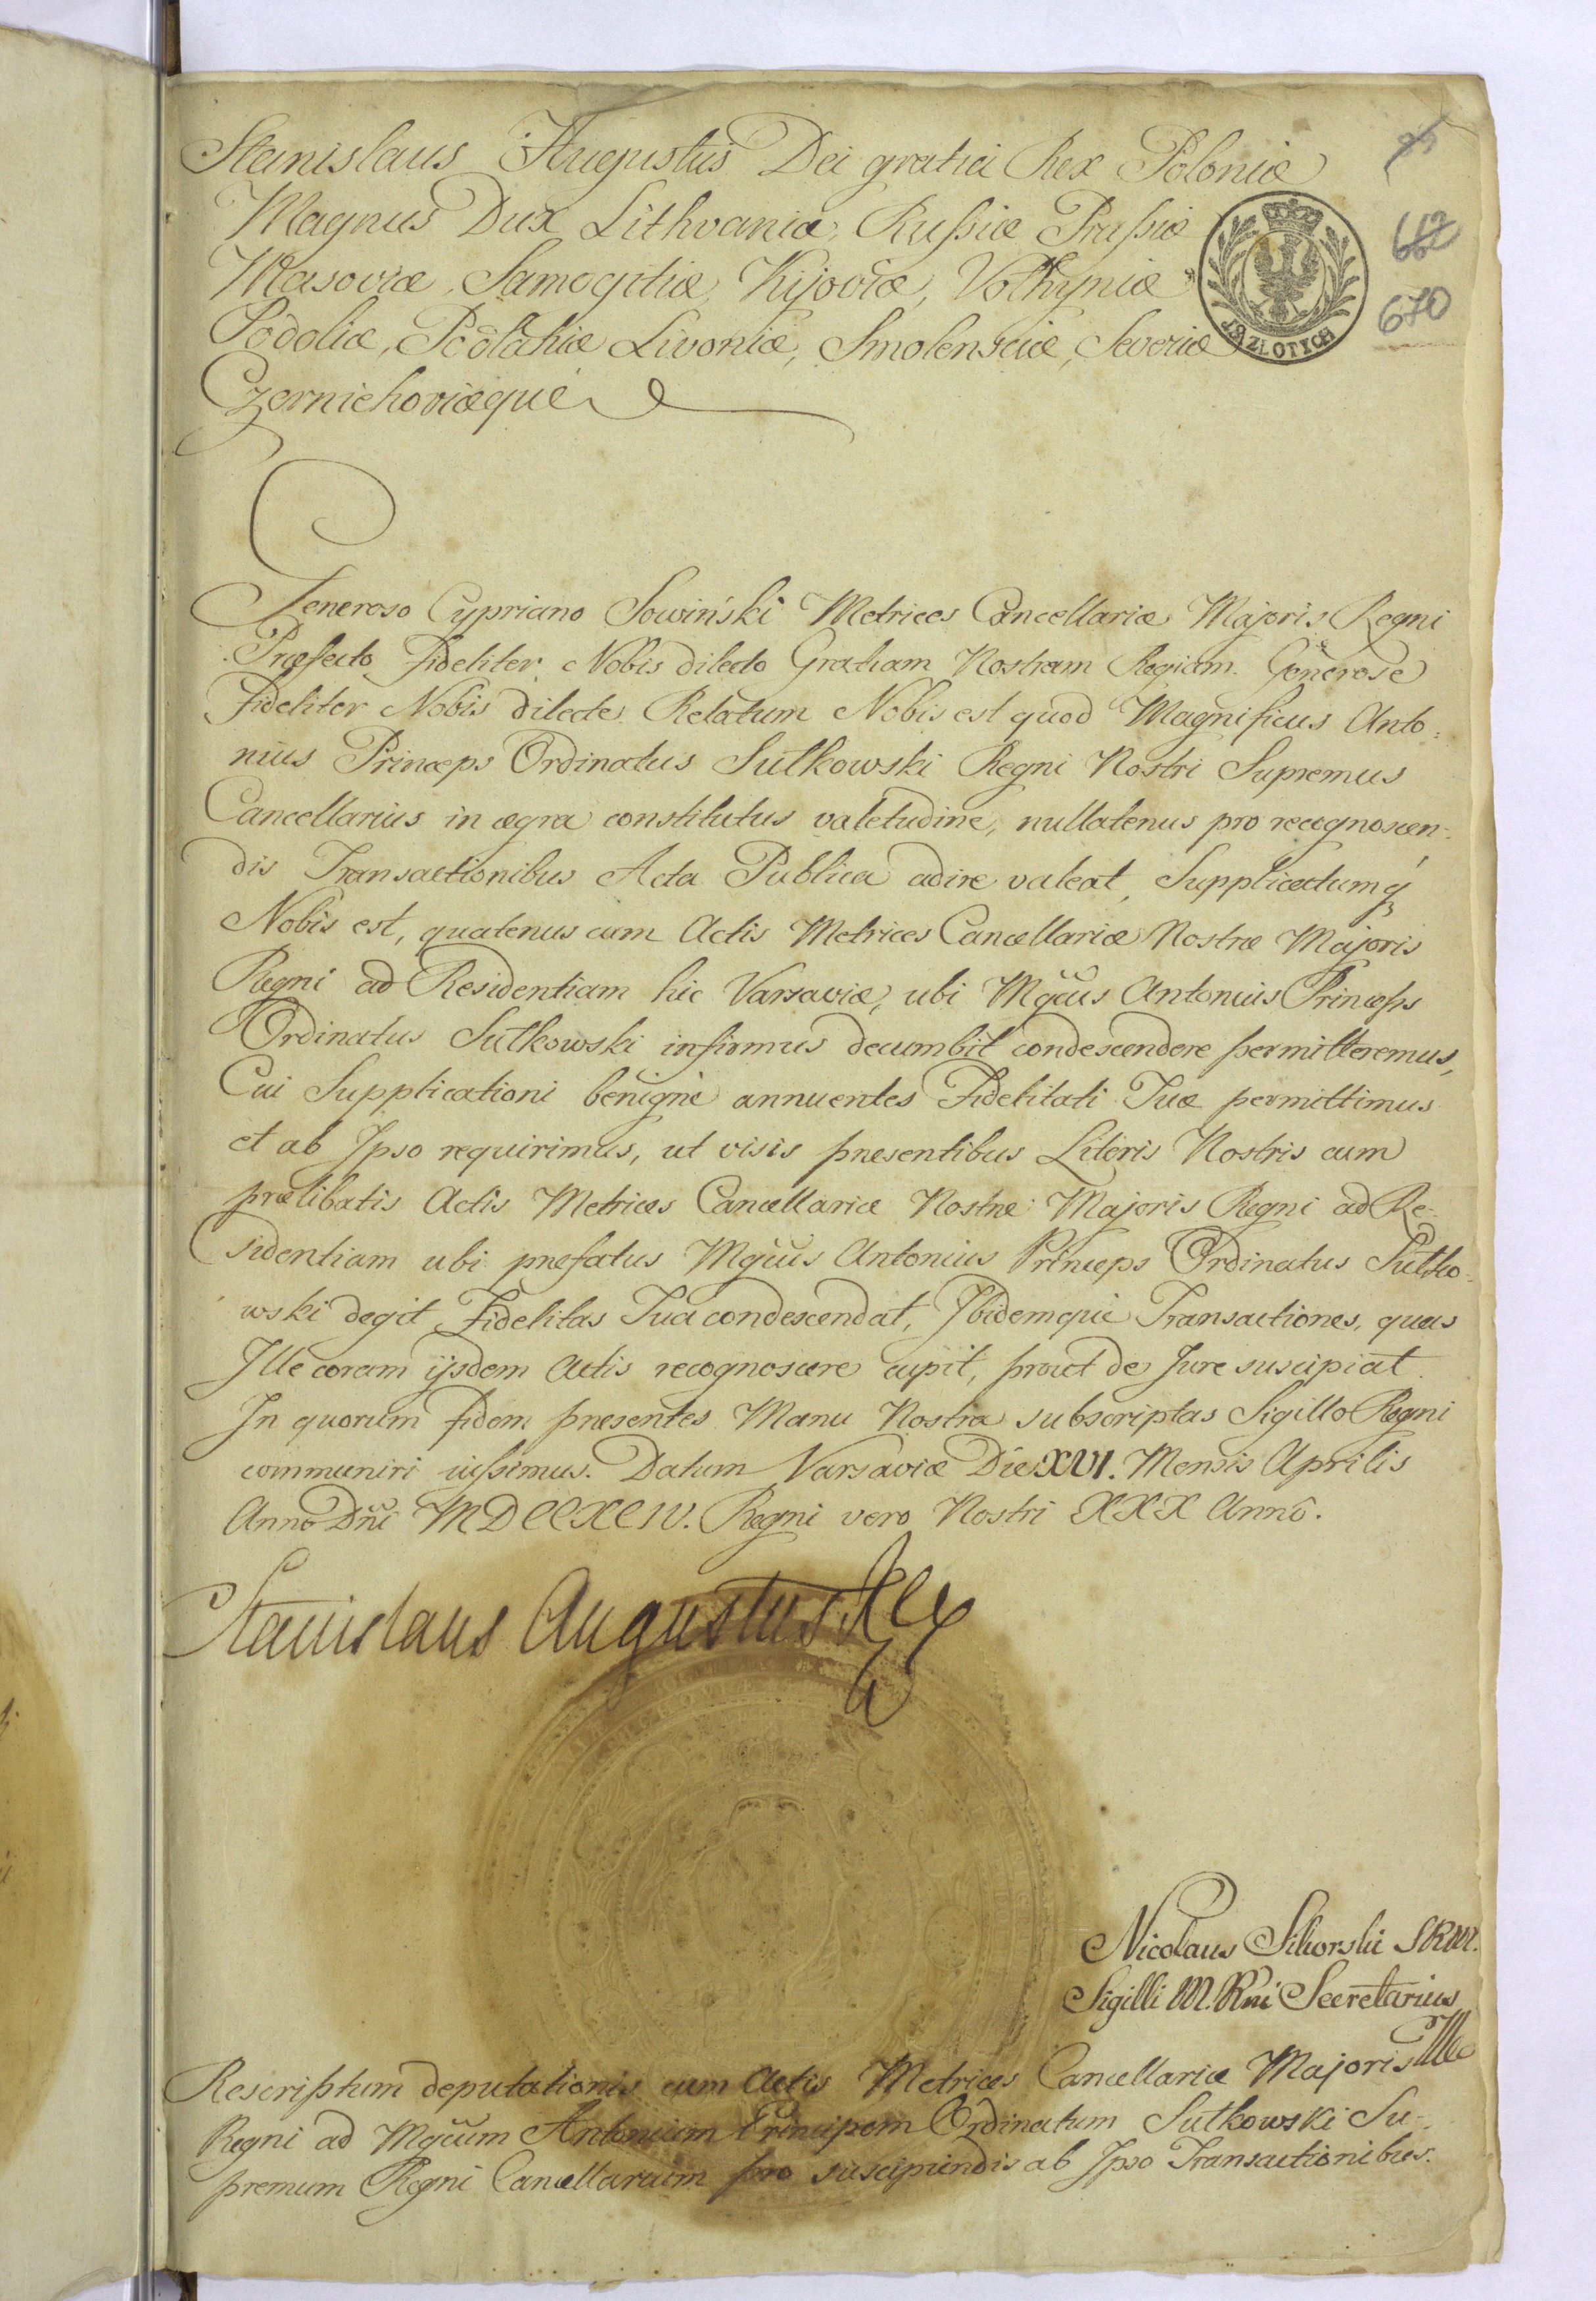 Stanislaus Augustus Dei gratia Rex Poloniæ
Magnus Dux Lithvaniæ, Russiæ Prussiæ
Masoviæ, Samogitiæ, Kijoviæ, Volhyniæ
Podoliæ, Podlahiæ Livoniæ, Smolensciæ, Severiæ
Czernichoviæque
662
670
ZŁOTYCH
Generoso Cypriano Sowiński Metrices Cancellariæ Majoris Regni
Præfecto, fideliter Nobis dilecto Gratiam Nostram Regiam. Generose
Fideliter Nobis dilecte. Relatum Nobis est quod Magnificus Anto=
nius Princeps Ordinatus Sułkowski Regni Nostri Supremus
Cancellarius in ægra constitutus valetudine, nullatenus pro recognoscen=
dis Transactionibus Acta Publica adire valeat, Supplicatumq́
Nobis est, quatenus cum Actis Metrices Cancellariæ Nostræ Majoris
Regni ad Residentiam hic Varsaviæ, ubi Mgcus Antonius Princeps
Ordinatus Sułkowski infirmus decumbit condescendere permitteremus,
Cui Supplicationi benigne annuentes Fidelitati Tuæ permittimus
et ab Ipso requirimus, ut visis præsentibus Literis Nostris cum
prælibatis Actis Metrices Cancellariæ Nostræ Majoris Regni ad Re=
sidentiam ubi præfatus Mgcus Antonius Princeps Ordinatus Sułko=
wski degit Fidelitas Tua condescendat, Ibidemque Transactiones, quas
Ille coram ijsdem Actis recognoscere cupit, prout de Jure suscipiat.
In quorum fidem præsentes Manu Nostra subscriptas Sigillo Regni
communiri iussimus. Datum Varsaviæ Die XVI. Mensis Aprilis
Anno Dñi MDCCXCIV. Regni vero Nostri XXX Anno.
Stanislaus Augustus Rex
Nicolaus Sikorski SRM.
Sigilli M. Rni Secretarius
Rescriptum deputationis cum Actis Metrices Cancellariæ Majoris
Regni ad Mgcum Antonium Principem Ordinatum Sułkowski Su=
premum Regni Cancellarium pro suscipiendis ab Ipso Transactionibus.